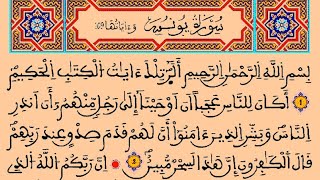 سورة يونس وءاياتها ١٠٩
بسم الله الرحمن الرحيم ألر تلك ءايت الكتب الحكيم
١ أكان للناس عجبا أن اوحينا إلى رجل منهم أن أنذر
الناس وبشر الذين ءامنوا أن لهم قدم صدق عند ربهم
قال الكفرون إن هذا لسحر مبين ٢ إن ربكم الله الذي